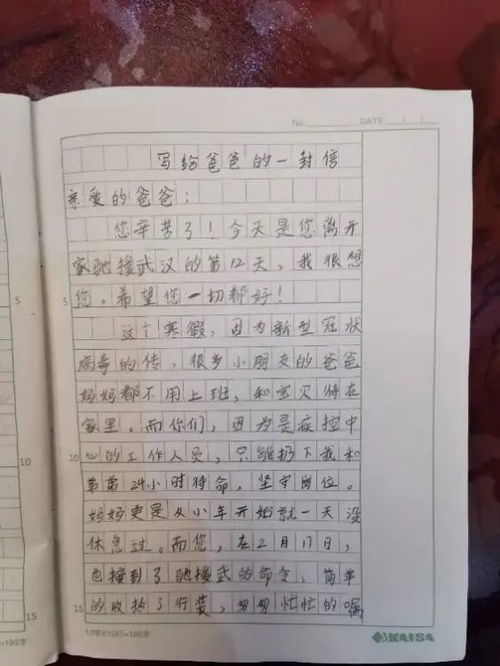 No. DATE / /
写给爸爸的一封信
亲爱的爸爸：
您辛苦了！今天是您离开
家驰援武汉的第12天，我很想
5 您，希望您一切都好！
这个寒假，因为新型冠状
病毒的传，很多小朋友的爸爸
妈妈都不用上班，和宝贝待在
家里。而你们，因为是疾控中
10 心的工作人员，只能扔下我和
弟弟24小时待命，坚守岗位。
妈妈更是从小年开始就一天没
休息过。而您，在2月17日，
也接到了驰援武的命令，简单
15 的收拾了行装，匆匆忙忙的嘱
KAISA
5
10
15
=195字